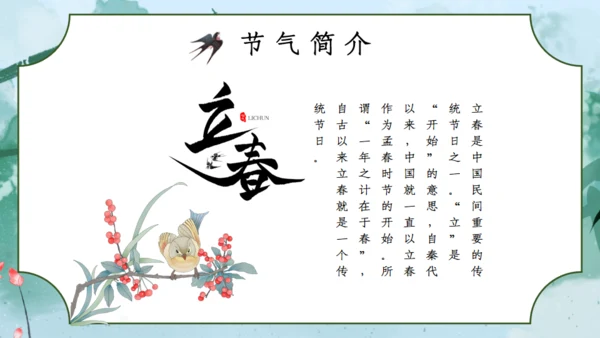 节气简介
立春
LICHUN
立春是中国民间重要的传
统节日之一。“立”是
“开始”的意思，自秦代
以来，中国就一直以立春
作为孟春时节的开始。所
谓“一年之计在于春”，
自古以来立春就是一个传
统节日。